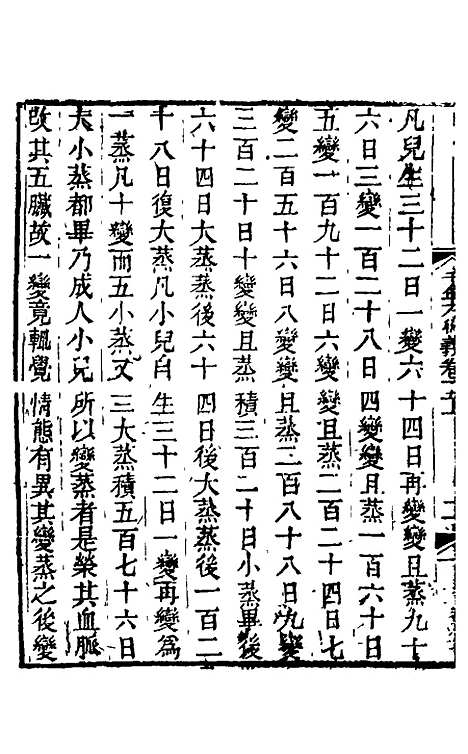 凡兒生三十二日一變六十四日再變變且蒸九十
六日三變一百二十八日四變變且蒸一百六十日
五變一百九十二日六變變且蒸二百二十四日七
變二百五十六日八變變且蒸二百八十八日九變
三百二十日十變變且蒸積三百二十日小蒸畢後
六十四日大蒸蒸後六十四日後大蒸蒸後一百二
十八日復大蒸凡小兒自生三十二日一變再變爲
一蒸凡十變而五小蒸又三大蒸積五百七十六日
大小蒸都畢乃成人小兒所以變蒸者是榮其血脈
改其五臟故一變竟輒覺情態有異其變蒸之後變